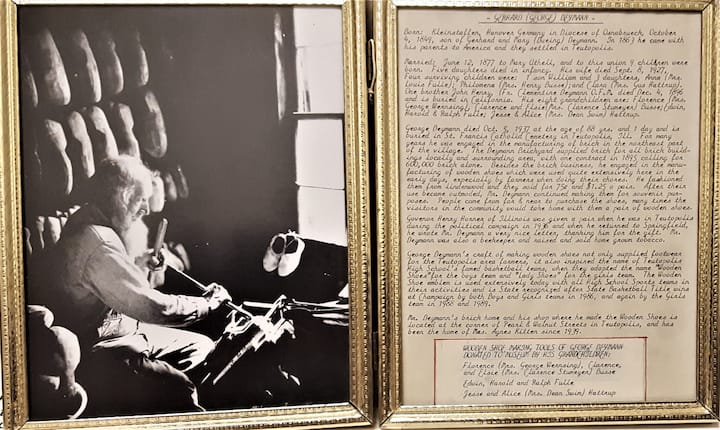 - GERHARD (GEORGE) DEYMANN -
Born: Kleinstaffen, Hanover Germany in Diocese of Osnabrueck, October
4, 1849, son of Gerhard and Mary Deymann. In 1863 he came with
his parents to America and they settled in Teutopolis.
Married: June 12, 1877 to Mary Uthell, and to this union 9 children were
born. Five daughters died in infancy. His wife died Sept. 8, 1927.
Four surviving children were: 1 son William and 3 daughters, Anna (Mrs.
Louis Fulle); Philomena (Mrs. Henry Busse); and Clara (Mrs. Gus Hattrup).
One brother John Henry (Fr. Clementine Deymann O.F.M. died Dec. 4, 1896
and is buried in California. His eight grandchildren are: Florence (Mrs.
George Wernsing), Clarence and Elsie (Mrs. Clarence Stuweyer) Busse; Edwin,
Harold & Ralph Fulle; Jesse & Alice (Mrs. Dean Swim) Hattrup.
George Deymann died Oct. 5, 1937 at the age of 88 yrs. and 1 day and is
buried in St. Francis Catholic Cemetery in Teutopolis Ill. For many
years he was engaged in the manufacturing of brick in the northeast part
of the village. The Deymann Brickyard supplied brick for all brick build-
ings locally and surrounding area, with one contract in 1895 calling for
600,000 brick alone. Besides the brick business, he engaged in the manu-
facturing of wooden shoes which were used quite extensively here in the
early days, especially by farmers when doing their chores. He fashioned
them from lindenwood and they sold for 75¢ and $1.25 a pair. After these
shoes became outmoded, Mr. Deymann continued making them for souvenir pur-
poses. People came from far & near to purchase the shoes, many times the
visitors in the community would take home with them a pair of wooden shoes.
Govenor Henry Horner of Illinois was given a pair when he was in Teutopolis
during the political campaign in 1936 and when he returned to Springfield,
he wrote Mr. Deymann a very nice letter, thanking him for the gift. Mr.
Deymann was also a beekeeper and raised and sold home grown tobacco.
George Deymann's craft of making wooden shoes not only supplied footwear
for the Teutopolis area farmers, it also inspired the name of Teutopolis
High School's famed basketball teams, when they adopted the name "Wooden
Shoes" for the boys team and "Lady Shoes" for the girls team. The Wooden
Shoe emblem is used extensively today with all High School Sports teams in
their activities and is State recognized after State Basketball Title wins
as champion by both Boys and Girls teams in 1986, and again by the Girls
team in 1988 and 1989.
Mr. Deymann's brick home and his shop where he made the Wooden Shoes is
located at the corner of Pearl & Walnut Streets in Teutopolis, and has
been the home of Mrs. Agnes Kitten since 1939.
WOODEN SHOE MAKING TOOLS OF GEORGE DEYMANN
DONATED TO MUSEUM BY HIS GRANDCHILDREN:
Florence (Mrs. George Wernsing), Clarence,
and Elsie (Mrs. Clarence Stuweyer) Busse
Edwin, Harold and Ralph Fulle
Jesse and Alice (Mrs. Dean Swim) Hattrup